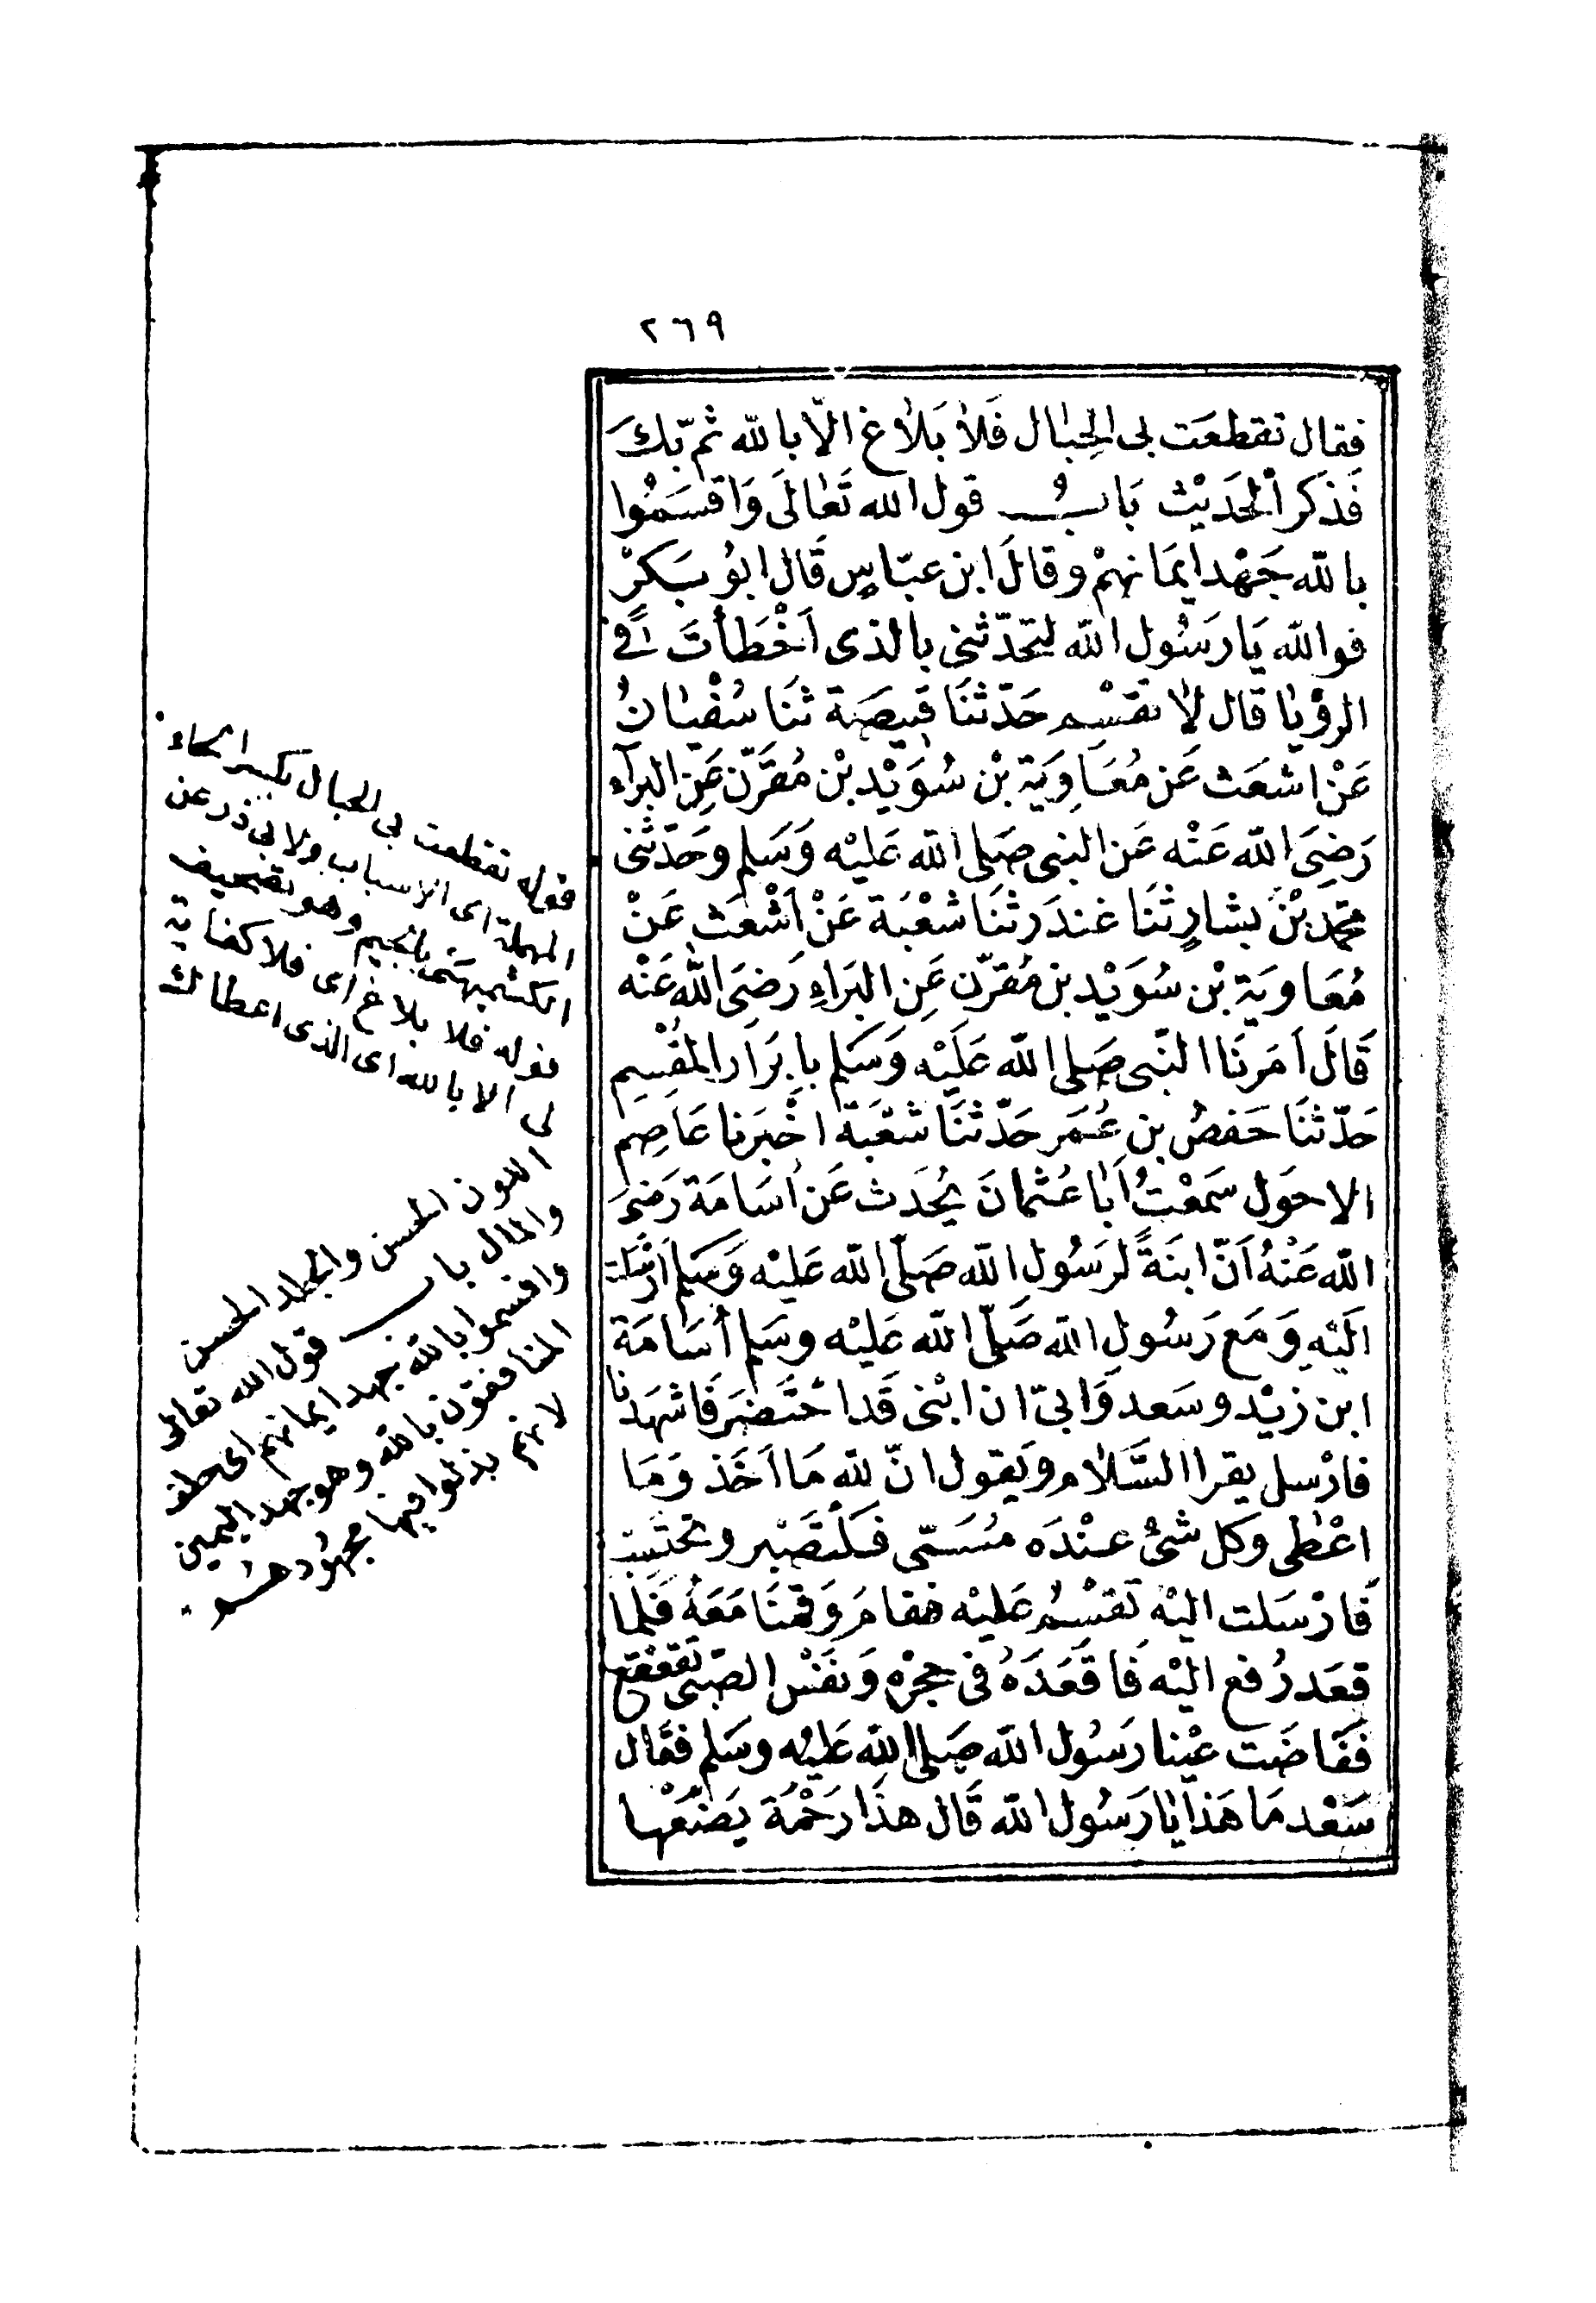 ٢٦٩
فقال تقطعَت بى الحِبٰال فَلاٰ بَلاٰغ الّا بالله ثم بّكَ
فَذكر اْلحَديْث بَابُ قول الله تَعٰالَى وَاقسَمُوا
بالله جَهْد ايمَانهمْ وقالَ ابن عبّاسٍ قَال ابوُ بَكرْ
فوالله يَا رَسُول الله لتحَدّثنى بالذى اَخْطَأتَ فى
الرؤيٰا قال لاٰ تقسْم حَدّثنَا قبيصَة ثنَا سُفْيٰانُ
عَنْ اشعَث عَن مُعَاوِيَة بْن سُوَيْد بْن مُقَرَّن عَنِ البرآء
رَضِىَ الله عَنْه عَن النبى صَلى الله عَليْه وَسَلم وحَدّثنى
محمد بْن بشارٍ ثنَا غندَر ثنَا شعْبَة عَنْ اَشْعَث عَنْ
مُعَاويَة بْن سُوَيْد بن مُقرّن عَنِ البَراءِ رَضِىَ اللهُ عَنْه
قَالَ اَمَرنَا النّبى صَلى الله عَلَيْه وَسَلم بابرَار المقْسِم
حَدّثنَا حَفصُ بن عُمَر حَدّثنَا شعْبَة اخْبَرنا عَاصِم
الاحوَل سَمعْتُ اَبٰا عُثمٰانَ يُحَدث عَن اُسَامَة رَضىَ
الله عَنْهُ اَنّ ابنَةً لرسُول الله صَلّى الله عَليْه وَسَلم اَرْسَلَت
اليْهِ وَمَع رَسُول الله صَلّى الله عَليْه وسَلم أسَامَة
ابن زيْد وسَعد وَابىّ ان ابْنى قَد احْتَضَرَ فَاشهَدنا
فارْسل يقرا السَّلاٰم وَيَقول انّ لله مَا اَخَذ وَمَا
اعْطٰى وكل شئٌ عنْدَه مُسَمّى فلْتَصْبر وتحتَسِبْ
فَارْسَلت اليْه تقسْمُ عَليْه فقامَ وَقمْنَا مَعَهُ فَلما
قعَد رُفع اليْه فَاقعَدَهُ فى حجرْه وَنفَسْ الصّبى تقعْقع
فَفَاضَت عيْنا رَسُول الله صَلى الله عَليْه وسَلم فقَال
سَعْد مَا هَذا يٰا رَسُول الله قَال هذَا رَحْمَة يَضَعْها
قوله تقطعت بى الحبال بكسر الحاء
المهملة اى الاسباب ولابى ذر عن
الكشميهنى بالجيم وهو تصحيف
قوله فلا بلاغ اى فلا كفاية
لى الا بالله اى الذى اعطاك
اللون الحسن والجلد الحسن
والمال باب قول الله تعالى
واقسموا بالله جهد ايمانهم اى حلف
المنافقون بالله وهو جهد اليمين
لانهم بذلوا فيها مجهودهم